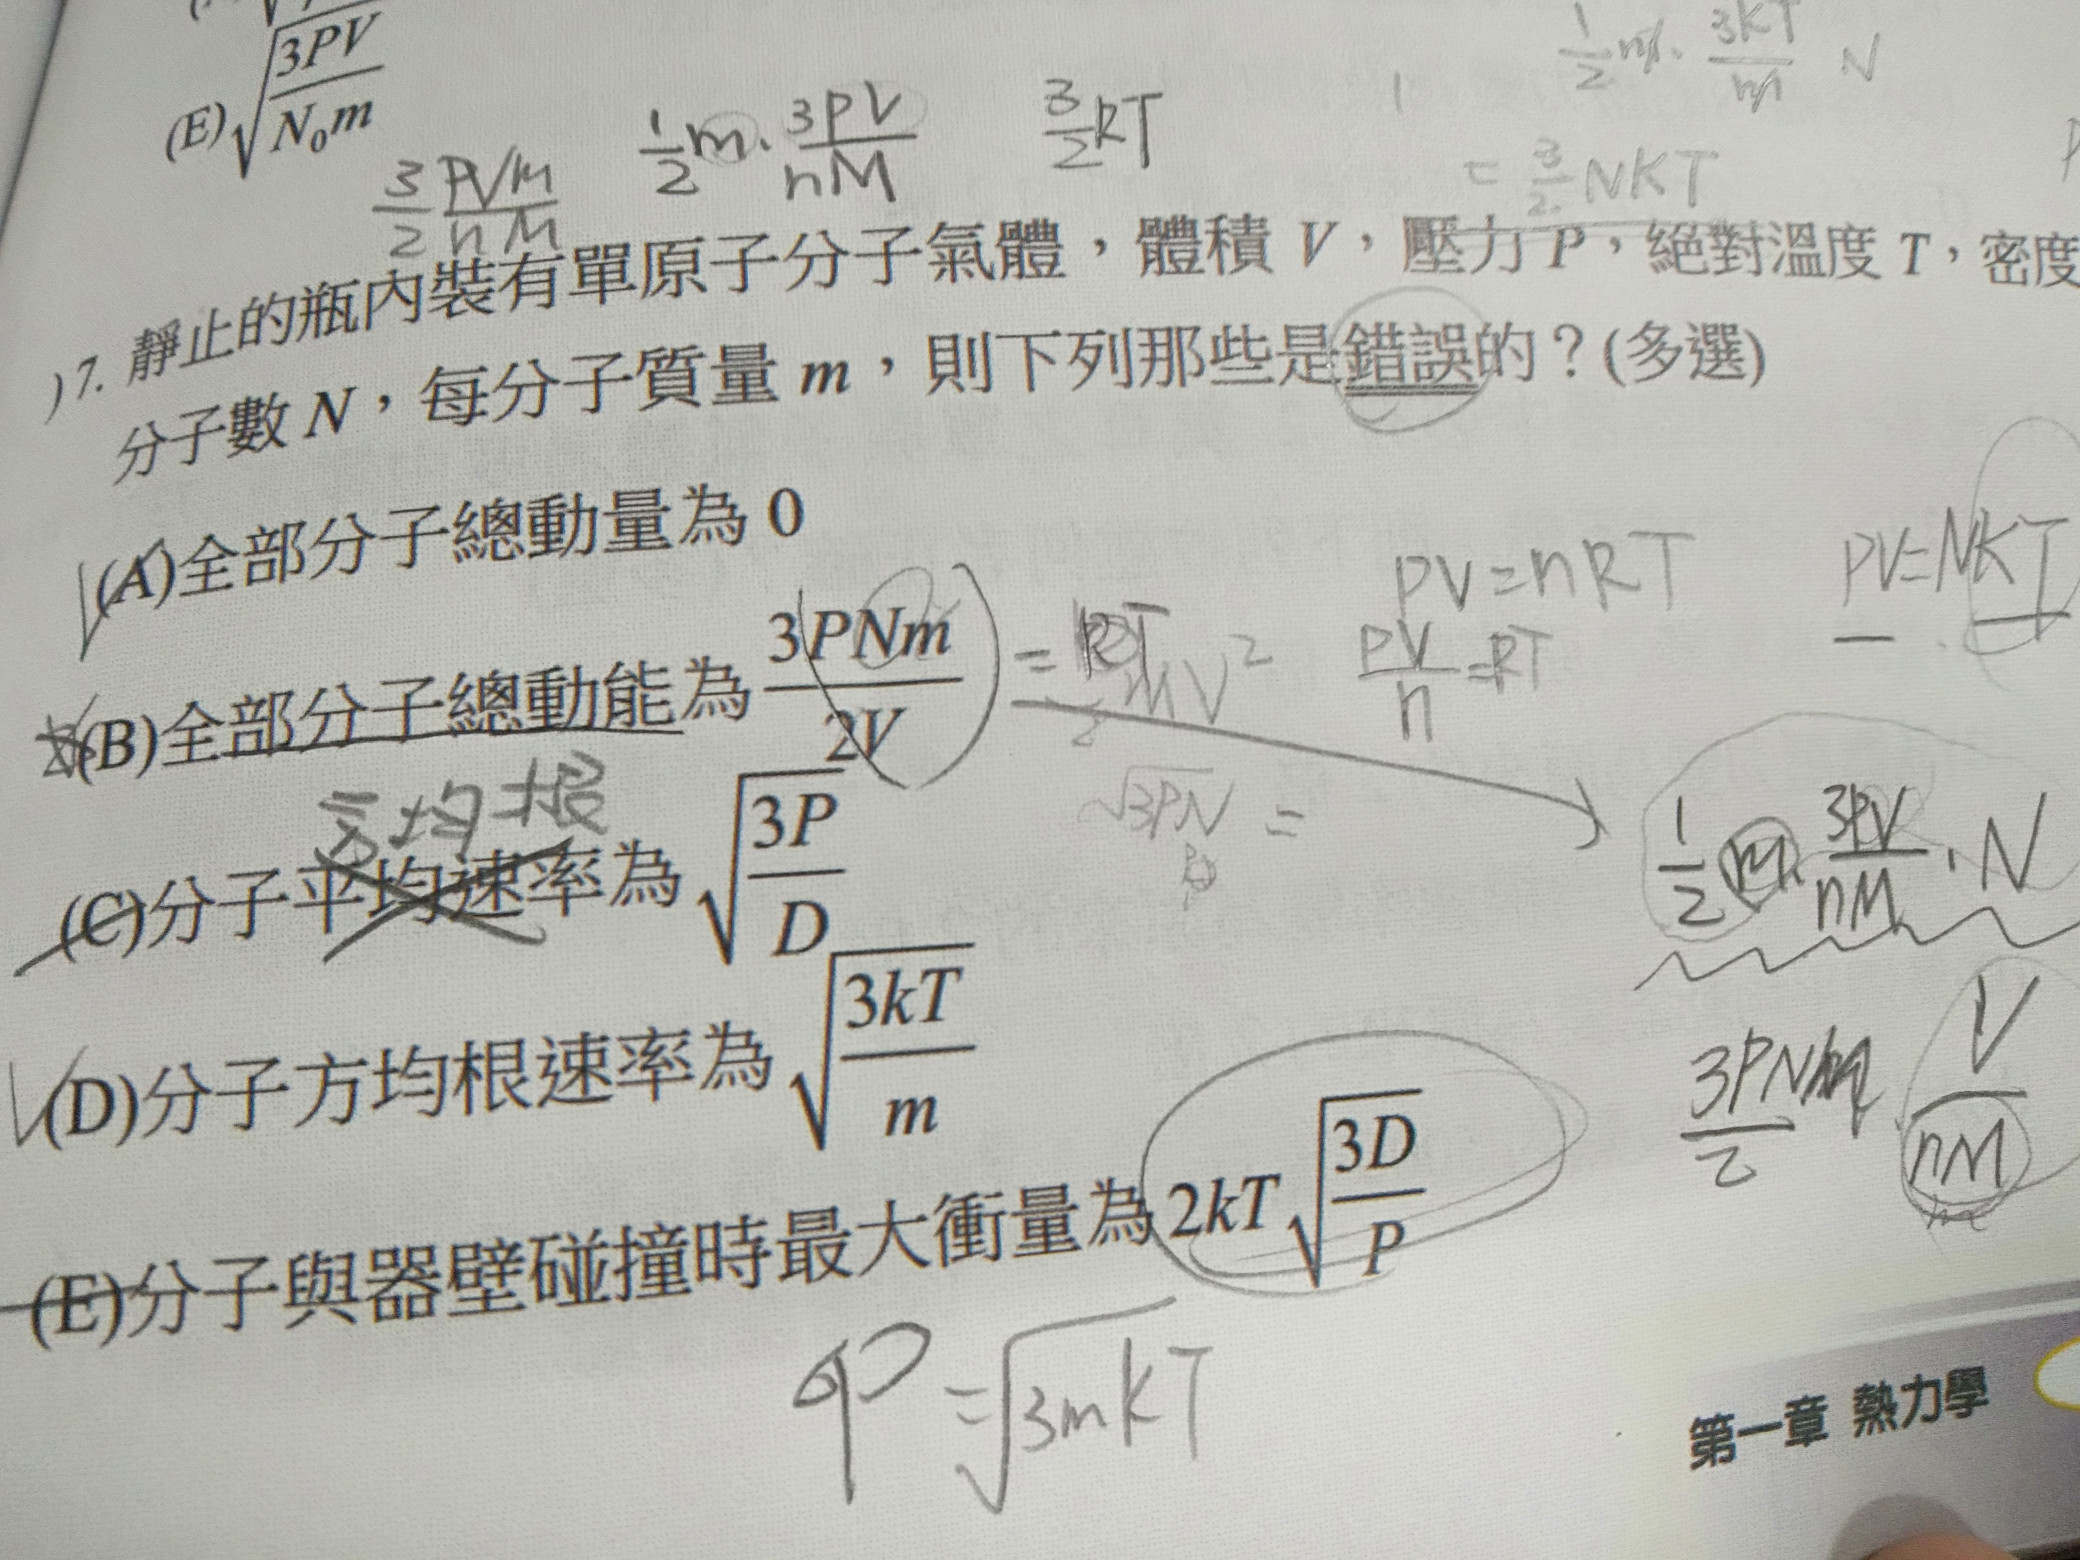 (E)√(3PV/N₀m)
1/2 m · 3PV/nM
3/2 RT
1/2 m · 3KT/m N
= 3/2 NKT
3/2 PVM/nM
)7. 靜止的瓶內裝有單原子分子氣體，體積 V，壓力 P，絕對溫度 T，密度
分子數 N，每分子質量 m，則下列那些是錯誤的？(多選)
(A)全部分子總動量為 0
PV=nRT
PV=NKT
(B)全部分子總動能為 3PNm/2V
PV/n=RT
√3PN =
(C)分子平均速率為 √(3P/D)
1/2 m · 3PV/nM · N
(D)分子方均根速率為 √(3kT/m)
3PN/2
V/nM
(E)分子與器壁碰撞時最大衝量為 2kT√(3D/P)
=√3mKT
第一章 熱力學